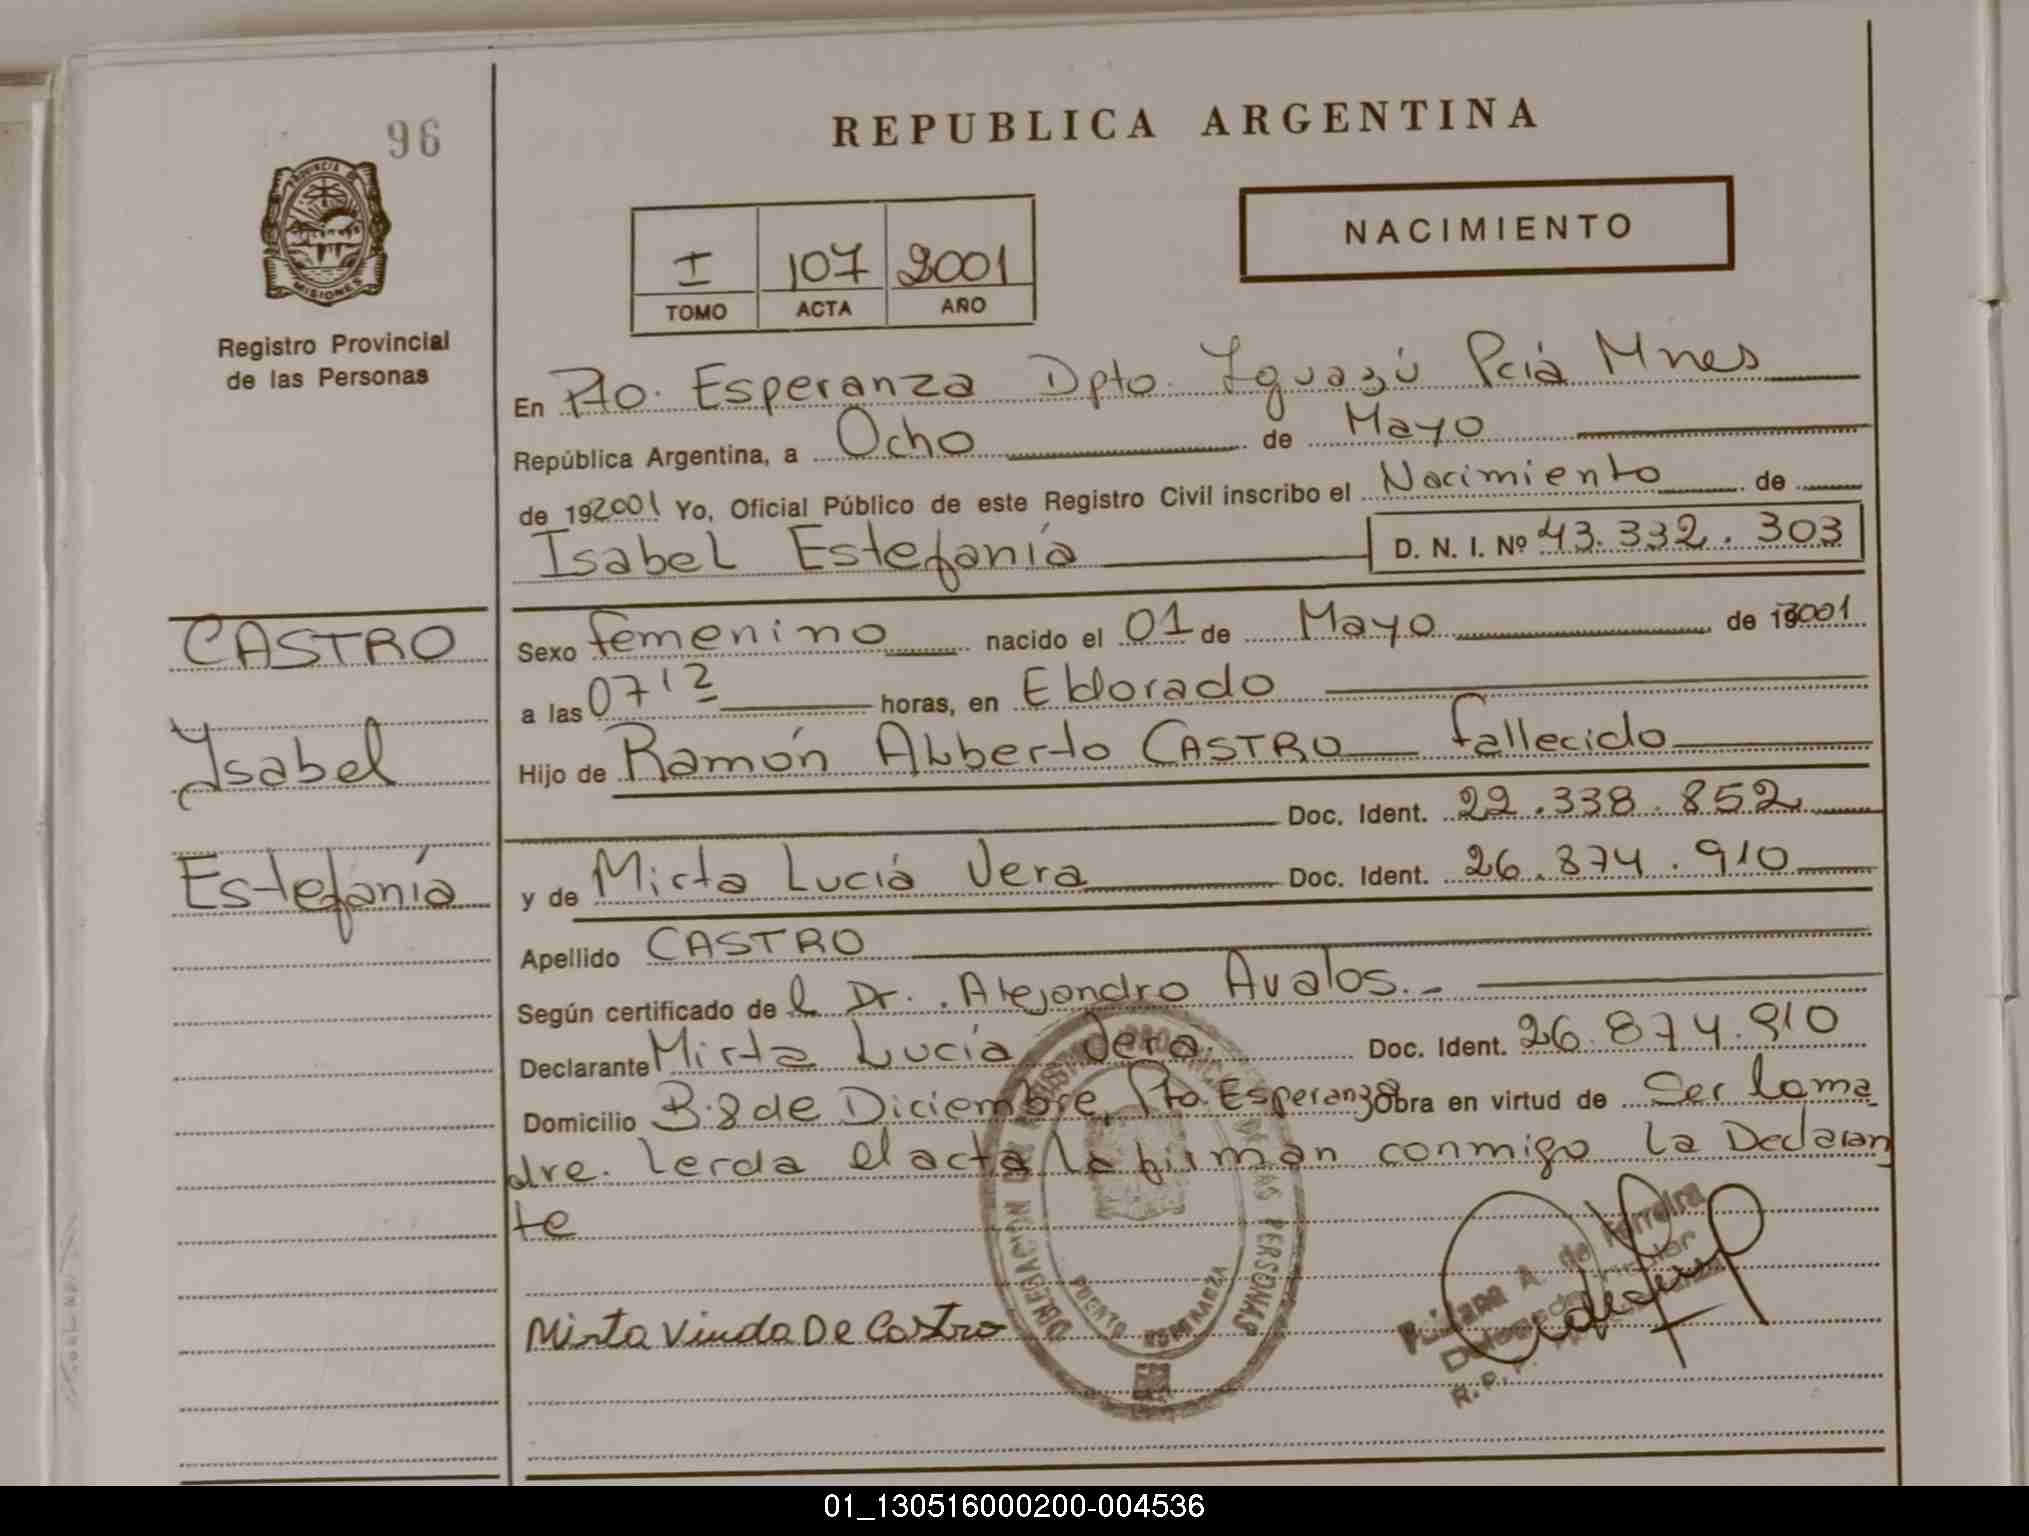 96
REPUBLICA ARGENTINA
PROVINCIA DE
MISIONES
Registro Provincial
de las Personas
I 107 2001
TOMO ACTA AÑO
NACIMIENTO
En Pto. Esperanza Dpto. Iguazú Pcia Mnes
República Argentina, a Ocho de Mayo
de 192001 Yo, Oficial Público de este Registro Civil inscribo el Nacimiento de
Isabel Estefanía D. N. I. Nº 43.332.303
CASTRO
Isabel
Estefanía
Sexo femenino nacido el 01 de Mayo de 192001
a las 07 12 horas, en Eldorado
Hijo de Ramón Alberto CASTRO fallecido
Doc. Ident. 22.338.852
y de Mirta Lucía Vera Doc. Ident. 26.874.910
Apellido CASTRO
Según certificado de l Dr. Alejandro Avalos.-
Declarante Mirta Lucía Vera Doc. Ident. 26.874.910
Domicilio B.8 de Diciembre, Pto. Esperanza Obra en virtud de Ser la ma
dre. Leida el acta la firman conmigo la Declaran
te
Mirta Viuda De Castro
PUERTO ESPERANZA
DE LAS PERSONAS
A. de Ferreira
01_130516000200-004536